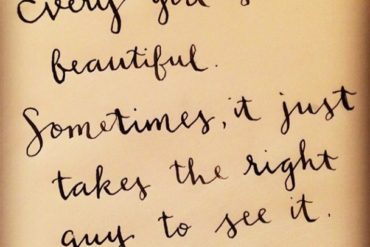 Every girl is
beautiful.
Sometimes, it just
takes the right
guy to see it.